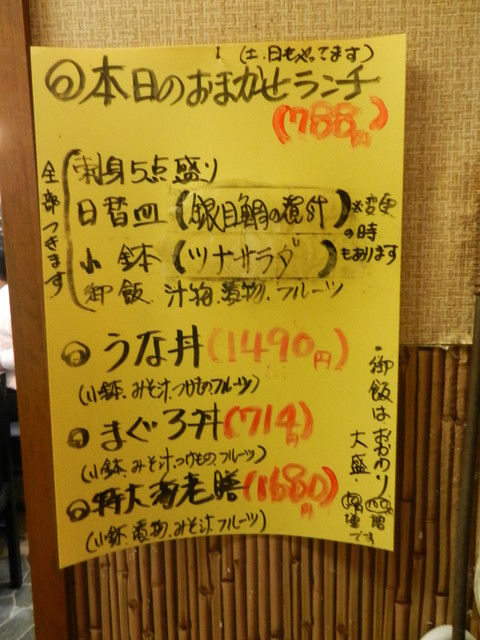 (土、日もやってます)
本日のおまかせランチ
(788円)
全部つきます
刺身5点盛り
日替皿(銀目鯛の煮付)
小鉢(ツナサラダ)
※変更
の時
もあります
御飯、汁物、漬物、フルーツ
うな丼(1490円)
(小鉢、みそ汁、つけもの、フルーツ)
まぐろ丼(714円)
(小鉢、みそ汁、つけもの、フルーツ)
特大海老膳(1680円)
(小鉢、漬物、みそ汁、フルーツ)
・御飯はおおわり
大盛・
です